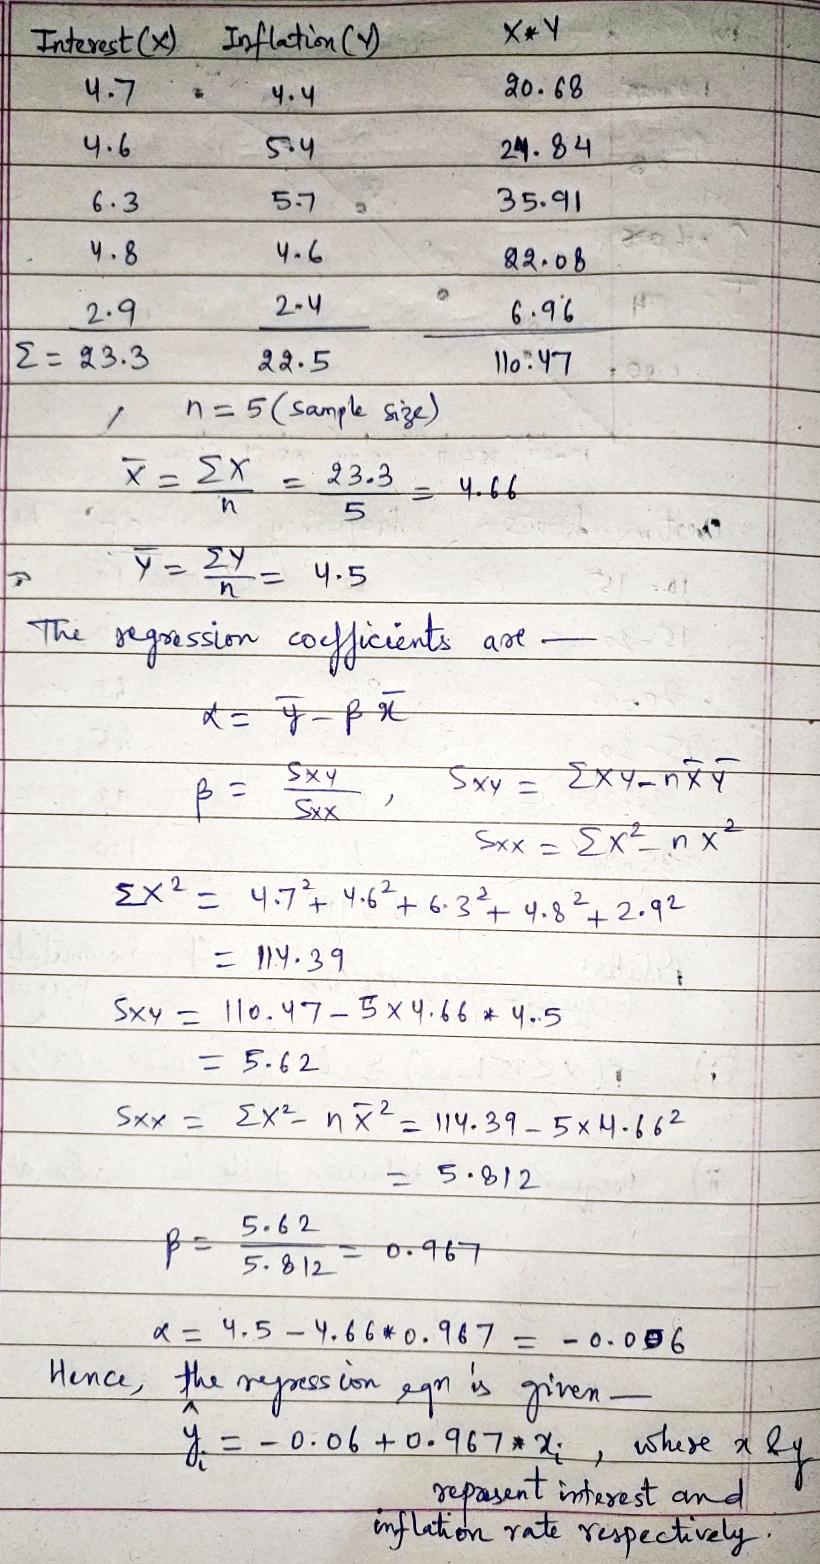 Interest (X) Inflation (Y) X*Y
4.7 4.4 20.68
4.6 5.4 24.84
6.3 5.7 35.91
4.8 4.6 22.08
2.9 2.4 6.96
Σ = 23.3 22.5 110.47
n = 5 (sample size)
X̄ = ΣX/n = 23.3/5 = 4.66
Ȳ = ΣY/n = 4.5
The regression coefficients are —
α = ȳ - β x̄
β = Sxy/Sxx , Sxy = ΣXY - n X̄ Ȳ
Sxx = ΣX² - n X²
ΣX² = 4.7² + 4.6² + 6.3² + 4.8² + 2.9²
= 114.39
Sxy = 110.47 - 5 x 4.66 * 4.5
= 5.62
Sxx = ΣX² - n X̄² = 114.39 - 5 x 4.66²
= 5.812
β = 5.62/5.812 = 0.967
α = 4.5 - 4.66 * 0.967 = - 0.006
Hence, the regression eqn is given —
ŷi = - 0.06 + 0.967 * xi , where x & y
represent interest and
inflation rate respectively.